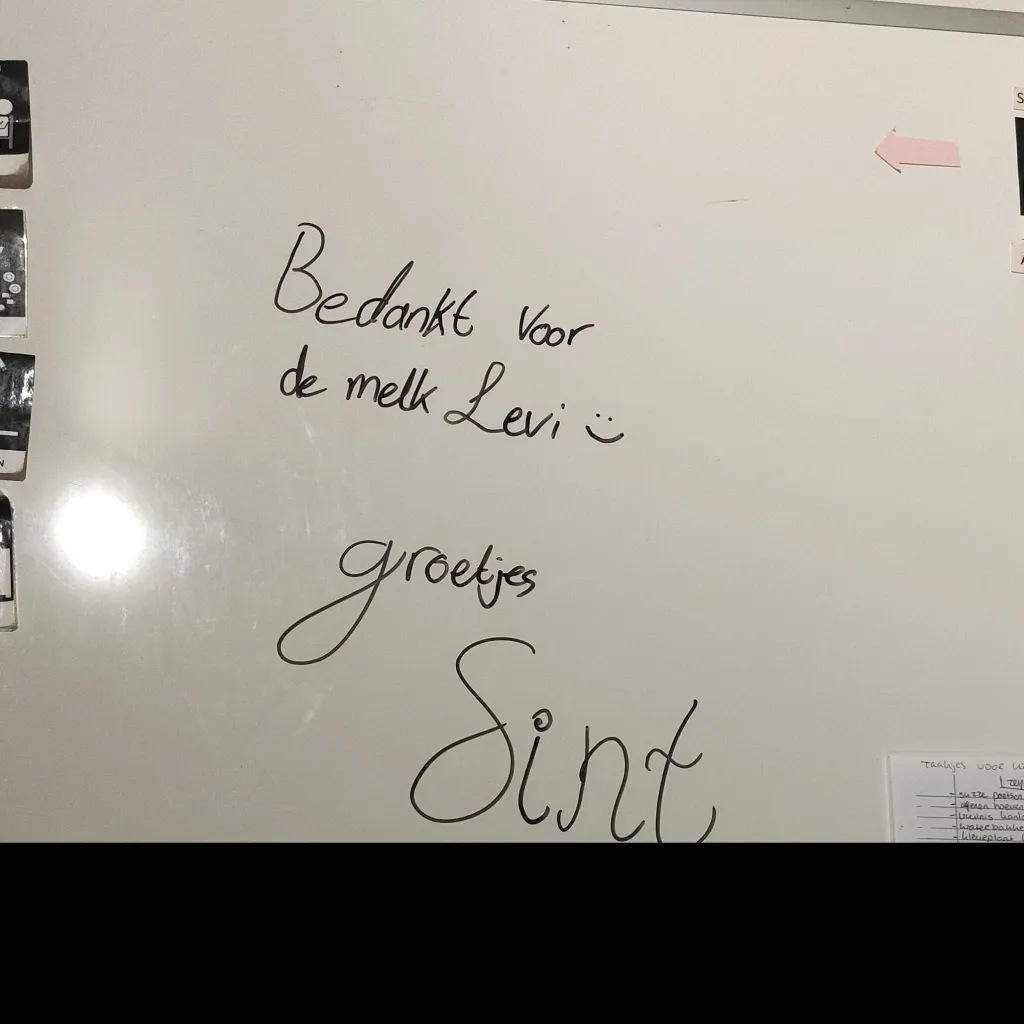 Bedankt Voor
de melk Levi :)
groetjes
Sint
S
A
N
Taakjes voor